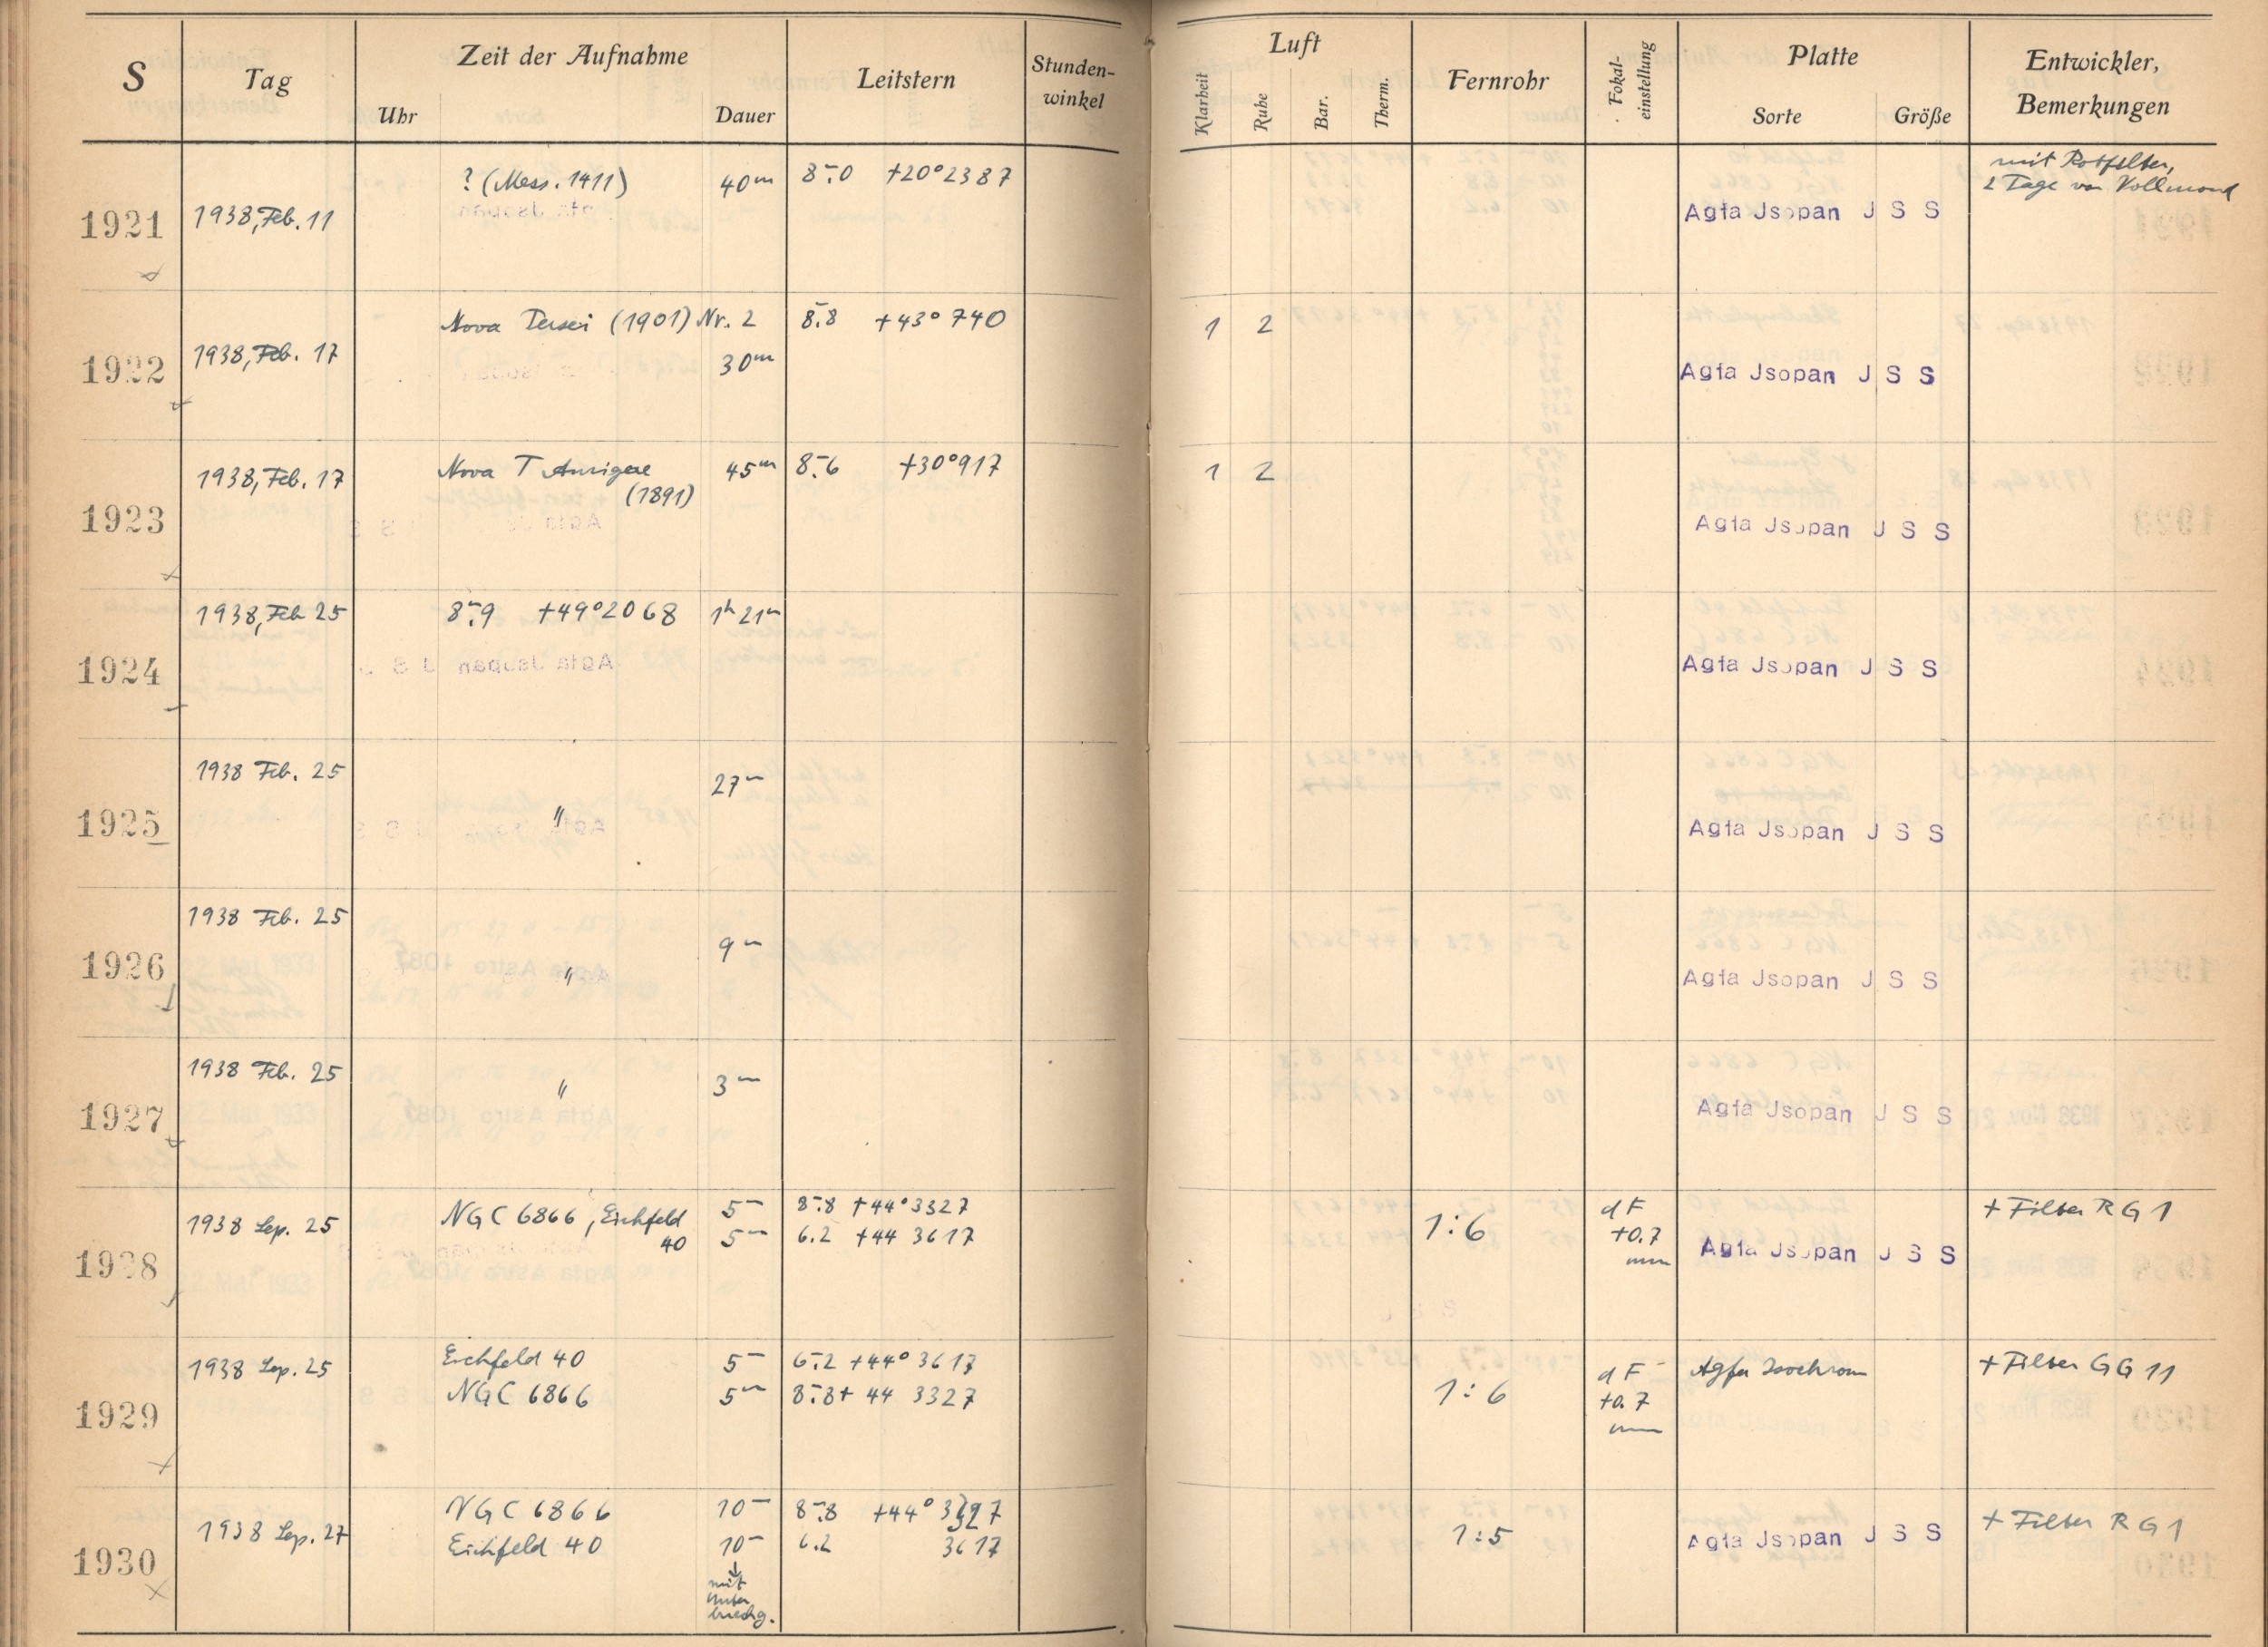 S Tag Zeit der Aufnahme Leitstern Stunden-winkel Luft Fernrohr Fokal-einstellung Platte Entwickler, Bemerkungen
Uhr Dauer Klarheit Ruhe Bar. Therm. Sorte Größe
1921 1938, Feb. 11 ? (Mess. 1411) 40m 8m.0 +20°2387 Agfa Jsopan J S S mit Rotfilter,
2 Tage vor Vollmond
1922 1938, Feb. 17 Nova Persei (1901) Nr. 2 8m.8 +43° 740 1 2 Agfa Jsopan J S S
30m
1923 1938, Feb. 17 Nova T Aurigae 45m 8m.6 +30°917 1 2 Agfa Jsopan J S S
(1891)
1924 1938, Feb 25 8m.9 +49°2068 1h 21m Agfa Jsopan J S S
1925 1938 Feb. 25 " 27m Agfa Jsopan J S S
1926 1938 Feb. 25 " 9m Agfa Jsopan J S S
1927 1938 Feb. 25 " 3m Agfa Jsopan J S S
1928 1938 Sep. 25 NGC 6866, Eichfeld 5m 8m.8 +44°3327 1:6 dF Agfa Jsopan J S S + Filter RG 1
40 5m 6.2 +44 3617 +0.7
mm
1929 1938 Sep. 25 Eichfeld 40 5m 6m.2 +44° 3617 1:6 dF Agfa Isochrom + Filter GG 11
NGC 6866 5m 8m.8 + 44 3327 +0.7
mm
1930 1938 Sep. 27 NGC 6866 10m 8m.8 +44° 3327 1:5 Agfa Jsopan J S S + Filter RG 1
Eichfeld 40 10m 6.2 3617
mit
Unter
brechg.